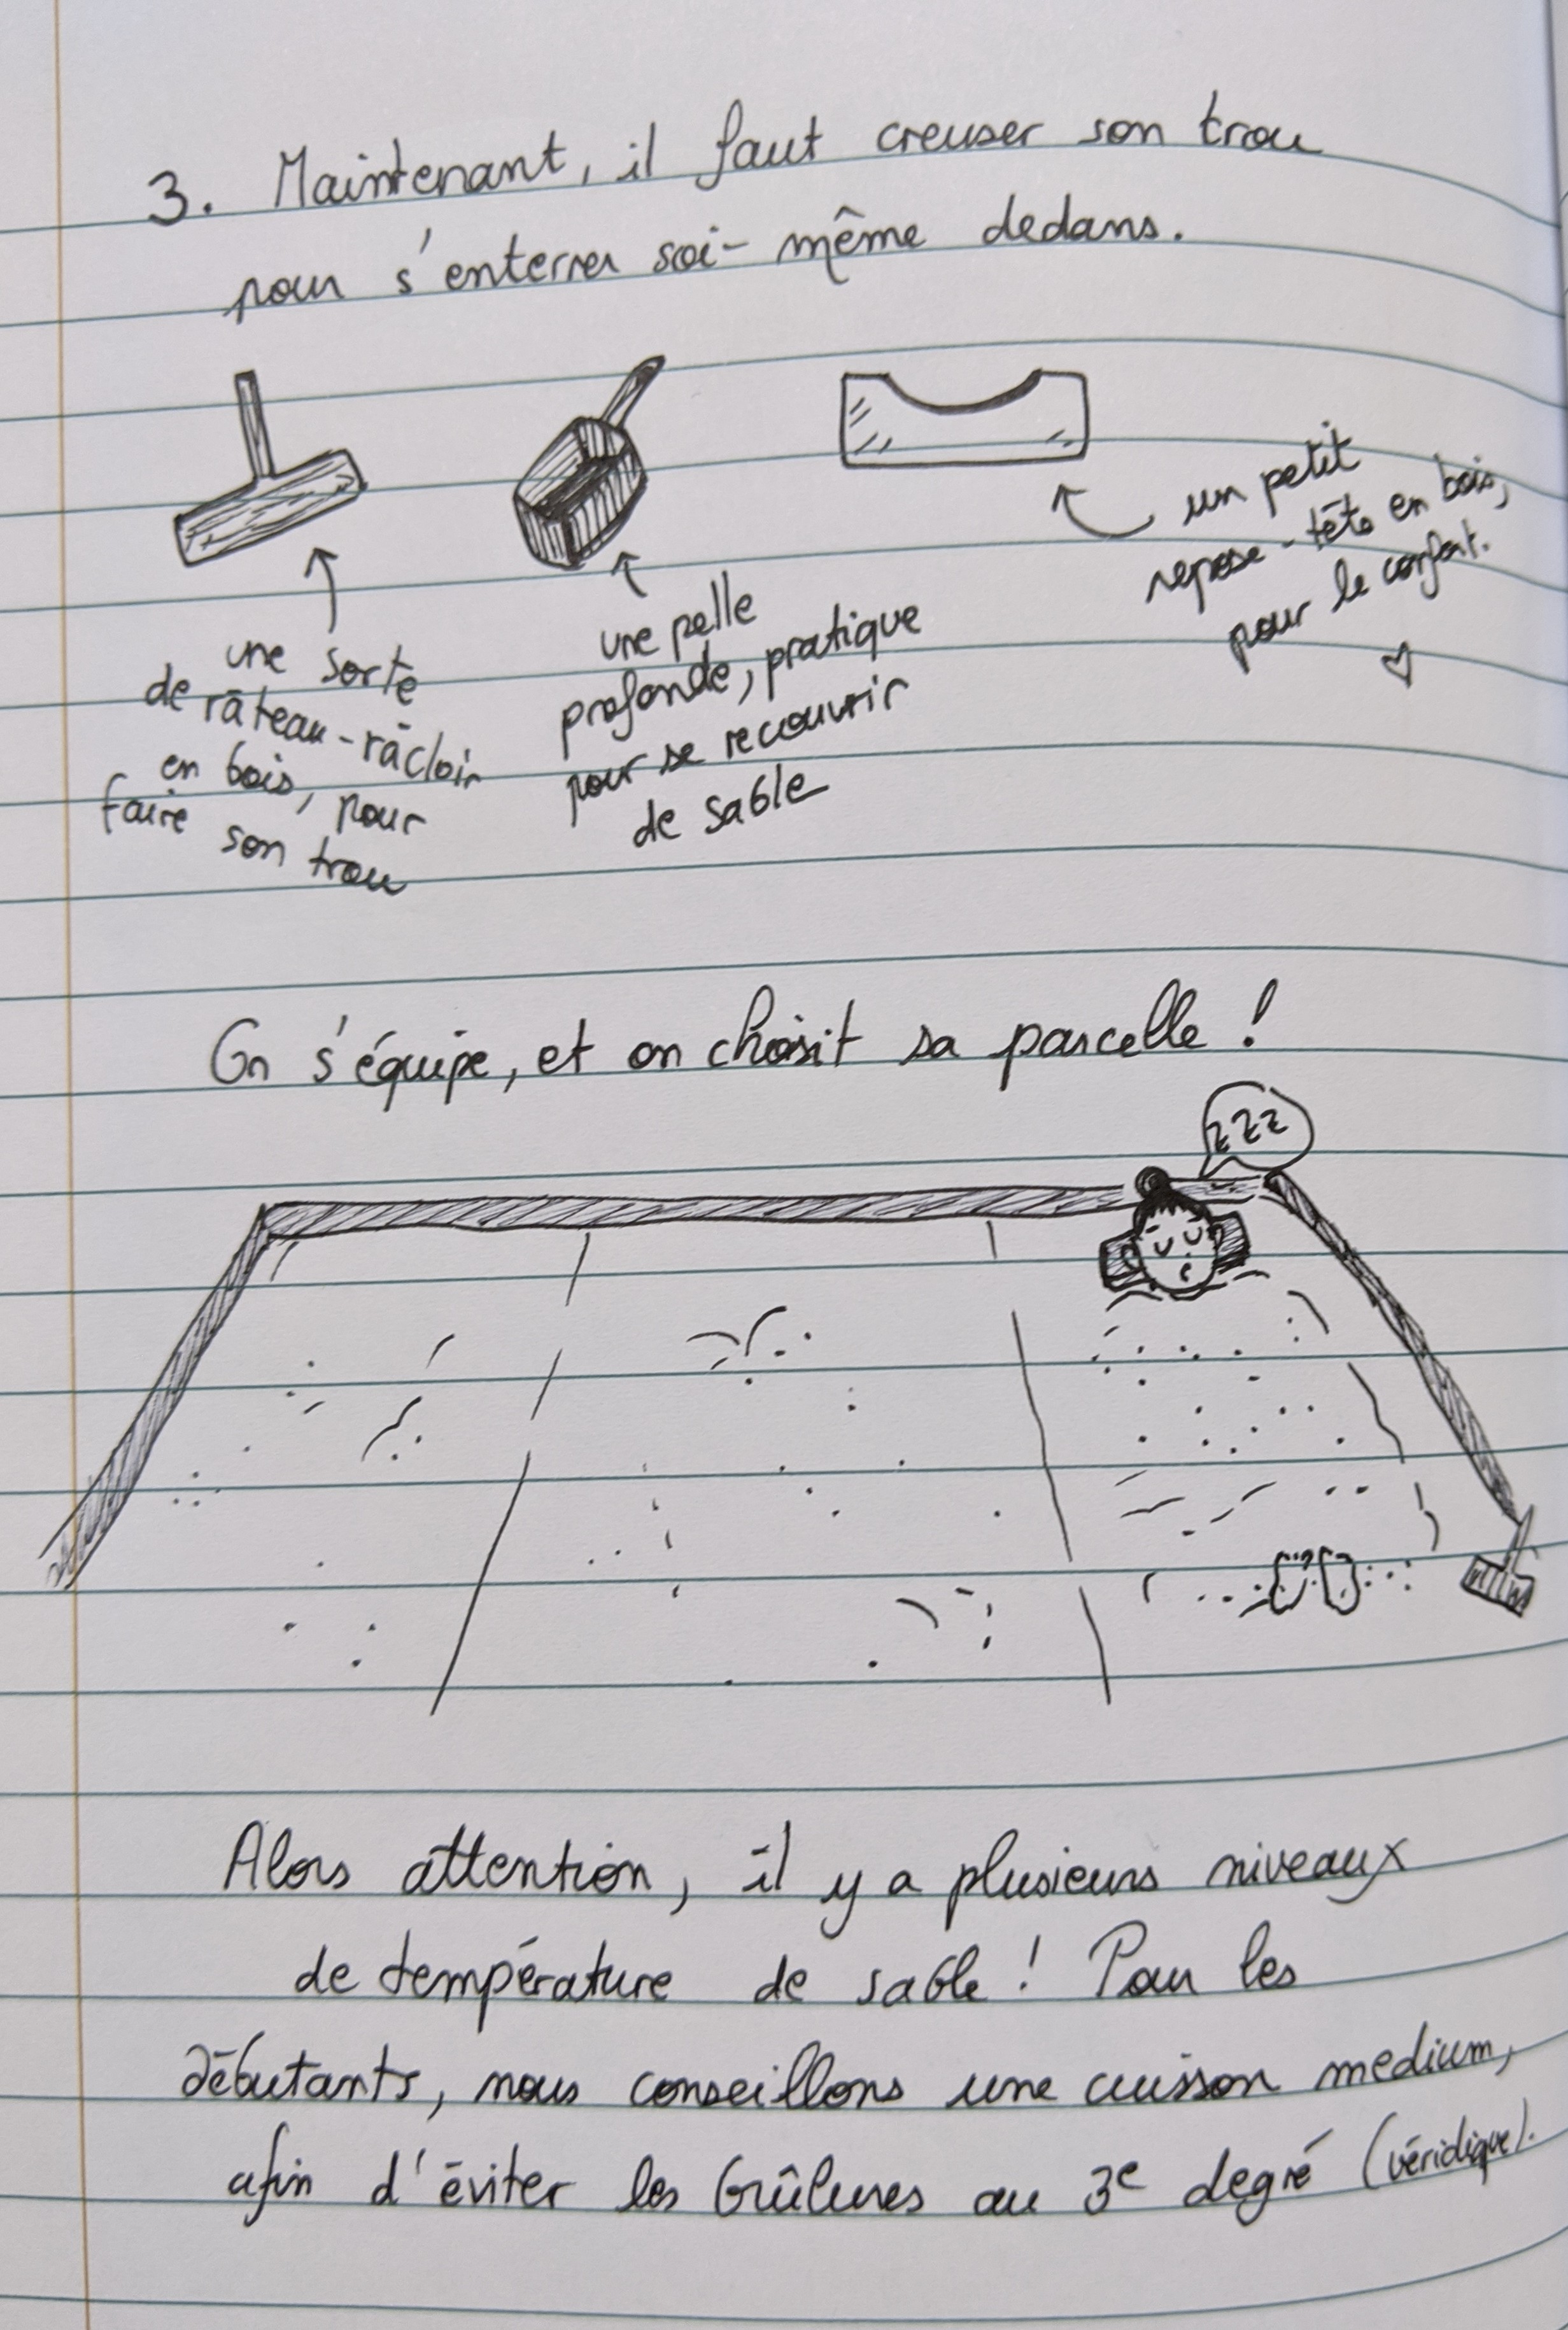 3. Maintenant, il faut creuser son trou
pour s'enterrer soi-même dedans.
une sorte
de râteau-râcloir
en bois, pour
faire son trou
une pelle
profonde, pratique
pour se recouvrir
de sable
un petit
repose-tête en bois,
pour le confort.
On s'équipe, et on choisit sa parcelle !
zzz
Alors attention, il y a plusieurs niveaux
de température de sable ! Pour les
débutants, nous conseillons une cuisson medium,
afin d'éviter les brûlures au 3e degré (véridique).